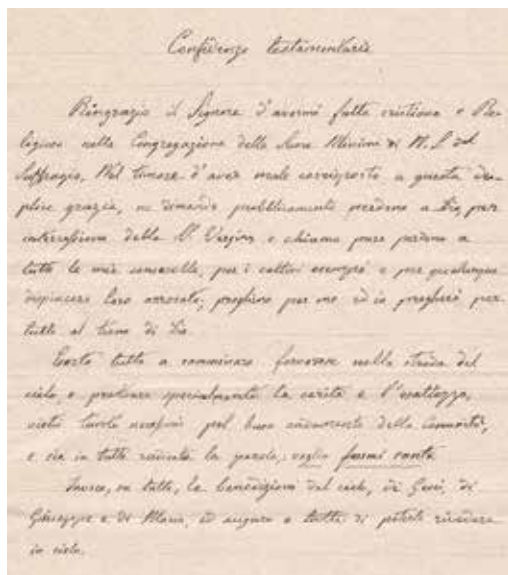 Confidenze testamentarie
Ringrazio il Signore d'avermi fatta cristiana e Re-
ligiosa nella Congregazione delle Suore Minime di N. S. del
Suffragio. Nel timore d'aver male corrisposto a questa du-
plice grazia, ne domando pubblicamente perdono a Dio, per
intercessione della V. Vergine e chiamo pure perdono a
tutte le mie consorelle, per i cattivi esempi e per qualunque
dispiacere loro arrecato, preghino per me ed io pregherò per
tutte al trono di Dio.
Esorto tutte a camminare fervorose nella strada del
cielo, e praticare specialmente la carità e l'esattezza,
tanto pel buon andamento della comunità,
e sia in tutte la parola, voglio farmi santa
su tutte, le benedizioni del cielo, di Gesù, di
Giuseppe e di Maria, ed auguro a tutte di poterle rivedere
in cielo.